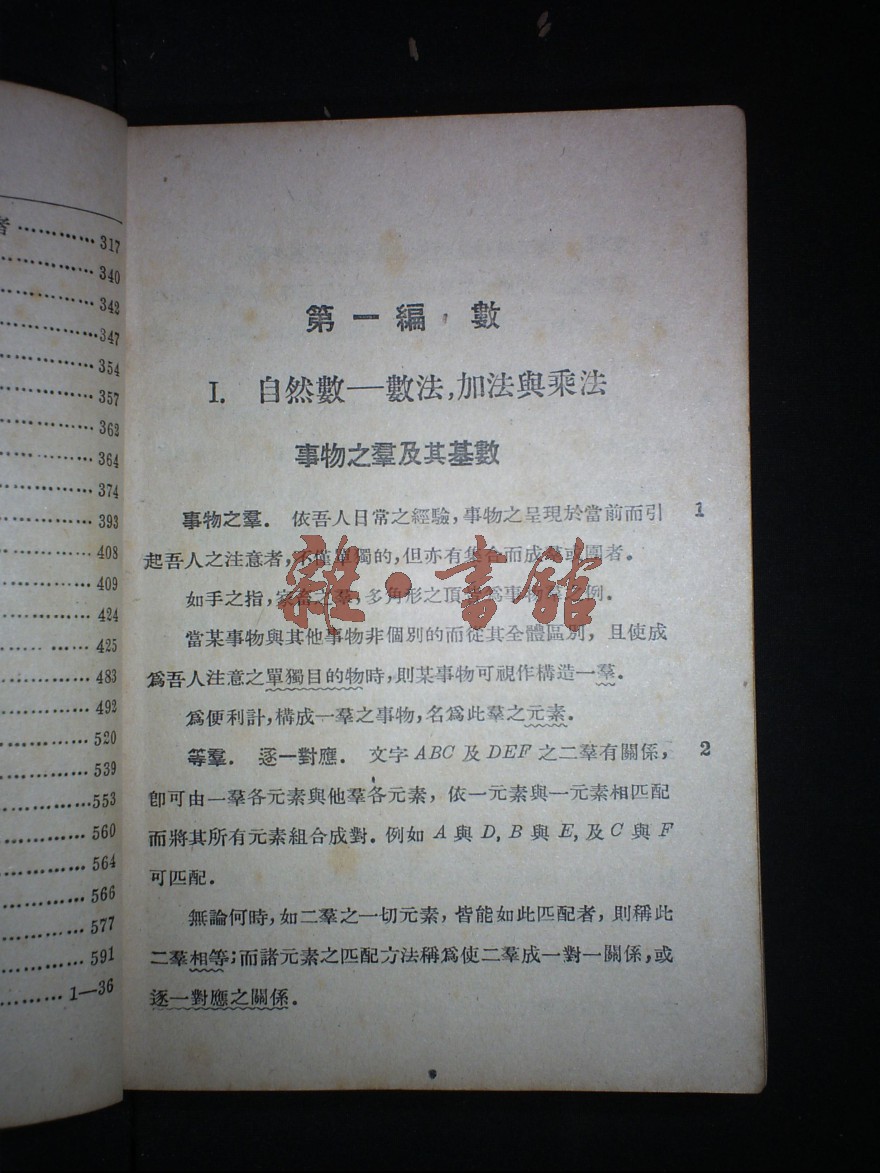 者 ………… 317
340
342
347
354
357
362
364
374
393
408
409
424
425
483
492
520
539
553
560
564
566
577
591
1—36
第一編 數
I. 自然數—數法,加法與乘法
事物之羣及其基數
事物之羣. 依吾人日常之經驗,事物之呈現於當前而引 1
起吾人之注意者,不僅單獨的,但亦有集合而成羣或團者.
如手之指,家畜之羣,多角形之頂皆爲事物羣之例.
當某事物與其他事物非個別的而從其全體區別, 且使成
爲吾人注意之單獨目的物時,則某事物可視作構造一羣.
爲便利計,構成一羣之事物,名爲此羣之元素.
等羣. 逐一對應. 文字 ABC 及 DEF 之二羣有關係, 2
卽可由一羣各元素與他羣各元素, 依一元素與一元素相匹配
而將其所有元素組合成對. 例如 A 與 D, B 與 E, 及 C 與 F
可匹配.
無論何時,如二羣之一切元素, 皆能如此匹配者, 則稱此
二羣相等;而諸元素之匹配方法稱爲使二羣成一對一關係,或
逐一對應之關係.
雜·書館